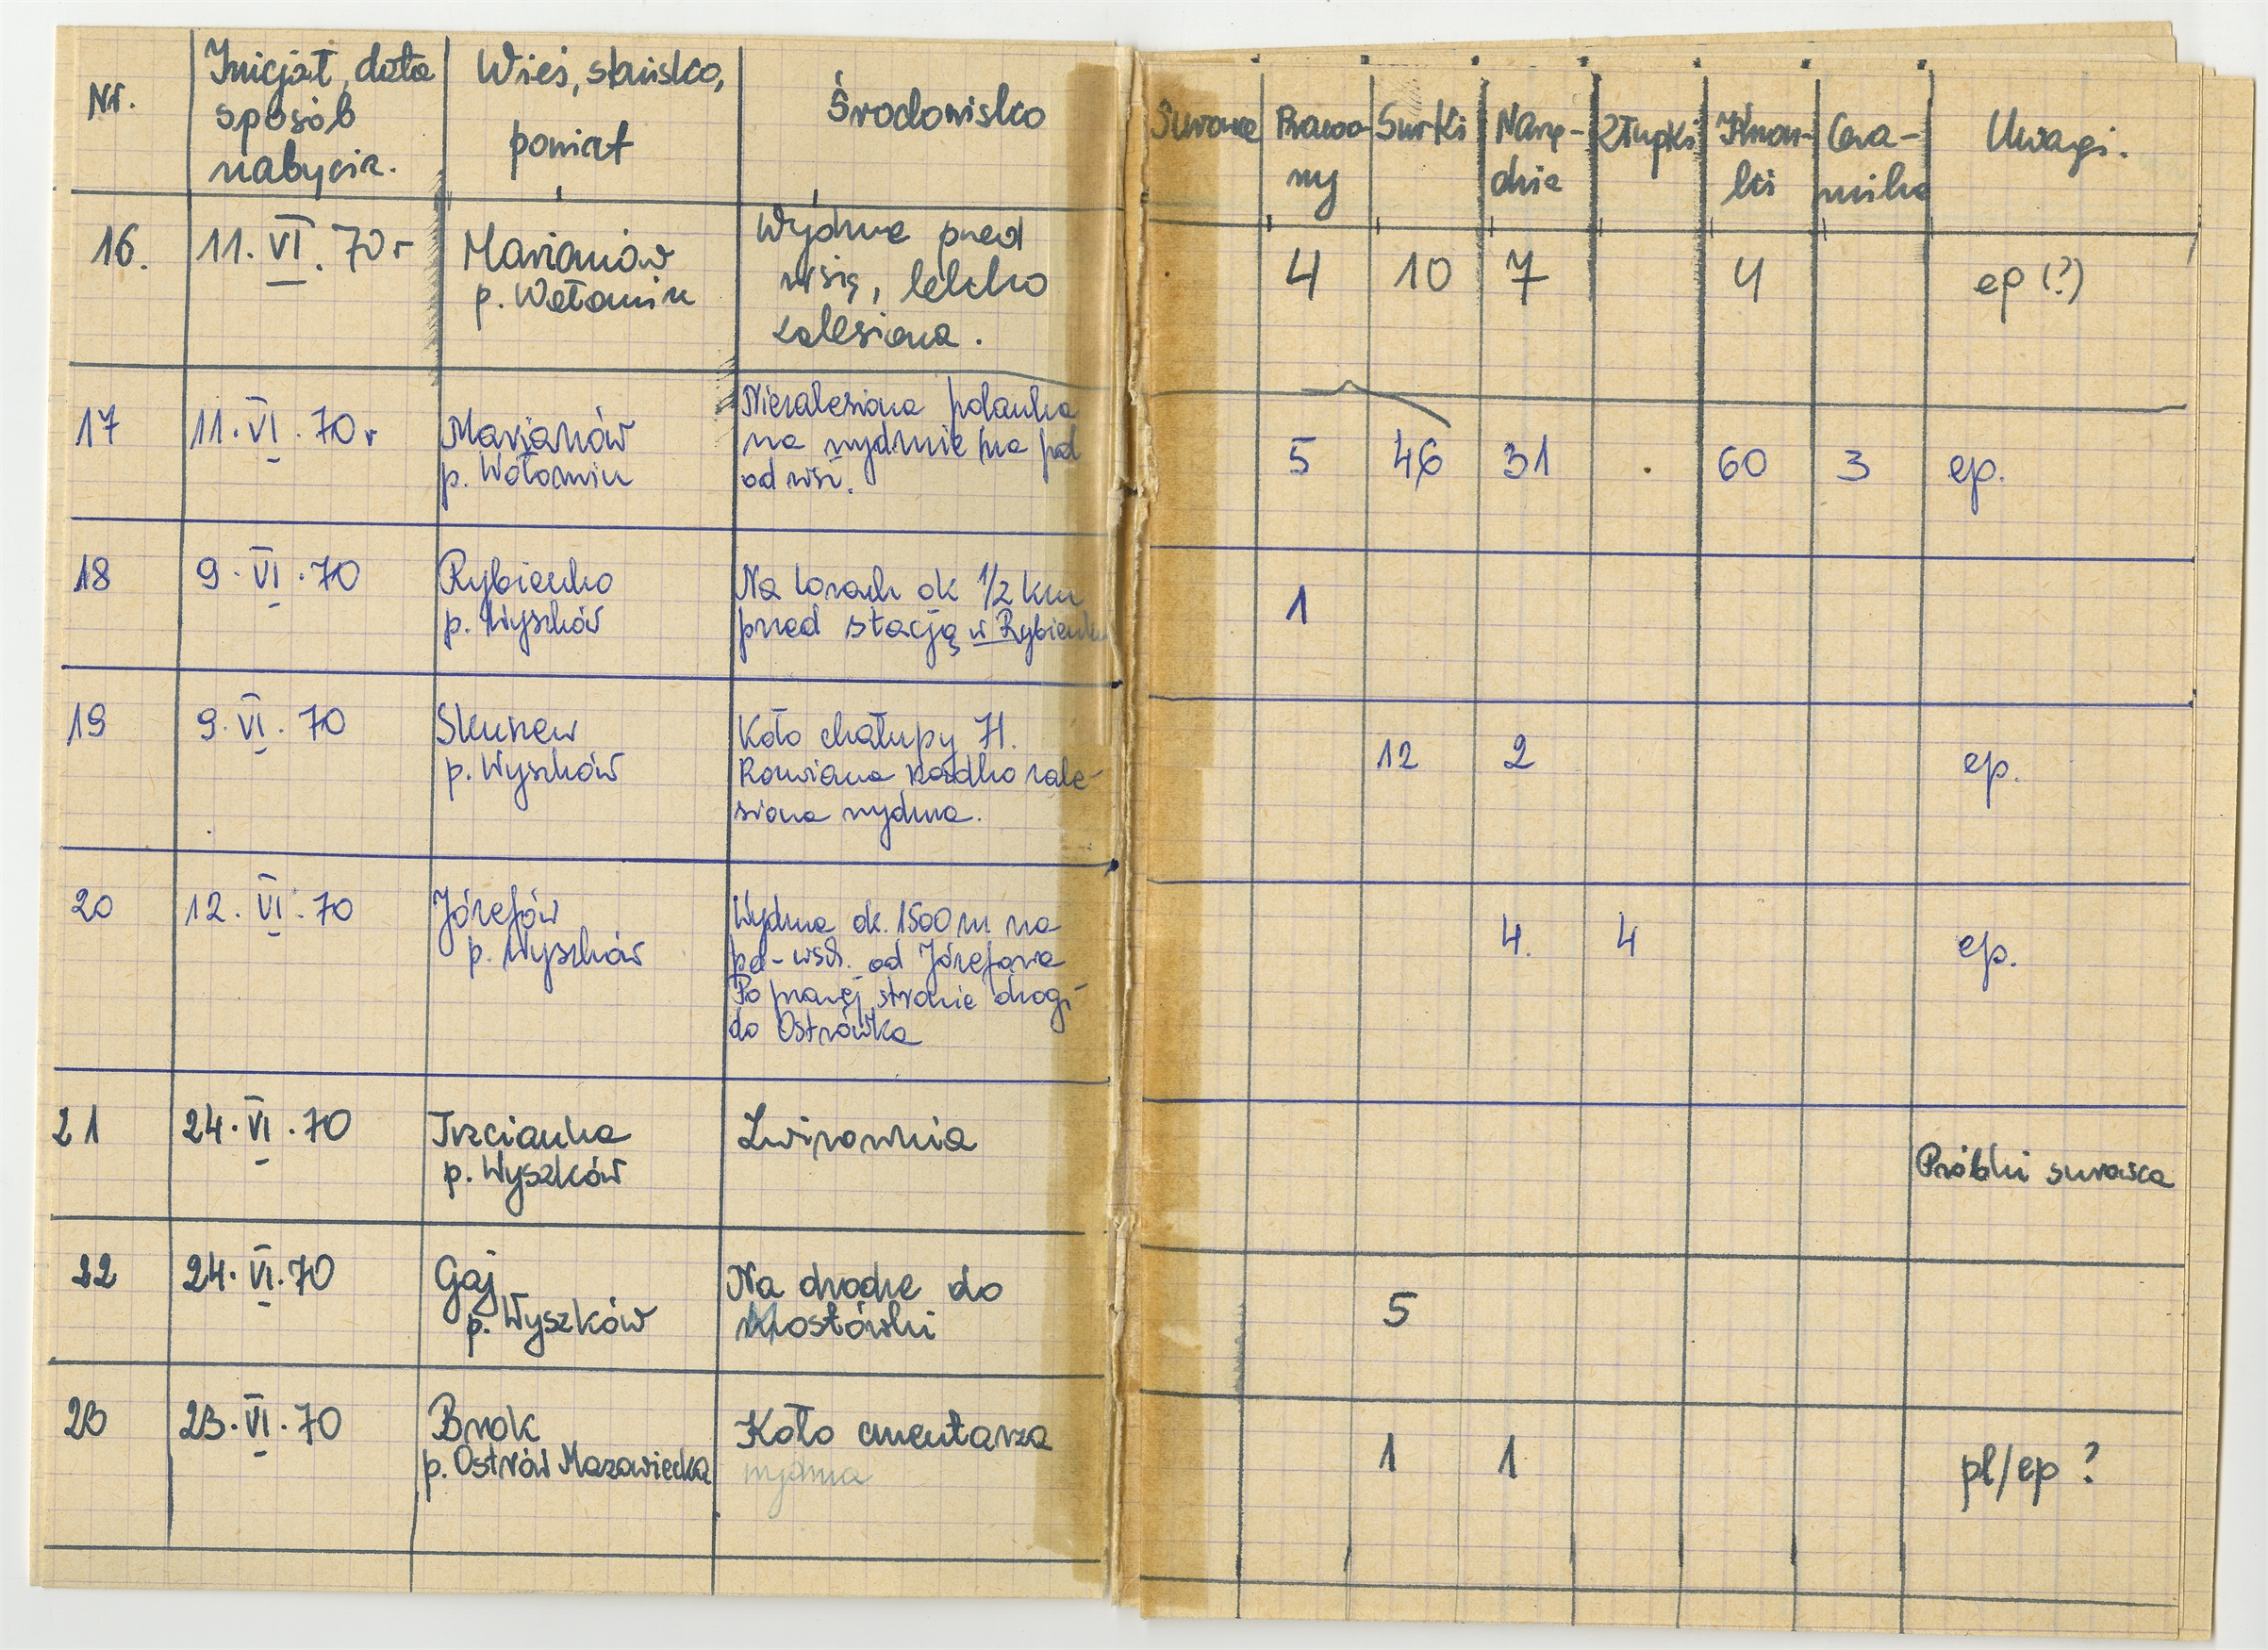 Nr.
Inicjał, data
sposób
nabycia.
Wieś, stanisko,
powiat
Środowisko
Surowce
Rdzenio-
ny
Surki
Narzę-
dzia
Złupki
Skrob-
ki
Cera-
mika
Uwagi.
16. 11. VI. 70 r
Marianów
p. Wołomin
Wydma przed
wsią, lekko
zalesiona.
4 10 7 4 ep (?)
17 11. VI. 70 r
Marianów
p. Wołomin
Niezalesiona polanka
na wydmie na pd
od wsi.
5 46 31 . 60 3 ep.
18 9. VI. 70
Rybienko
p. Wyszków
Na torach ok 1/2 km
przed stacją w Rybienku
1
19 9. VI. 70
Skuszew
p. Wyszków
Koło chałupy H.
zale-
siona wydma.
12 2 ep.
20 12. VI. 70
Józefów
p. Wyszków
Wydma ok. 1500 m na
pd-wsch. od Józefowa
Po prawej stronie drogi
do Ostrówka
4. 4 ep.
21 24. VI. 70
Trzcianka
p. Wyszków
Żwirownia
Próbki surowca
22 24. VI. 70
Gaj
p. Wyszków
Na drodze do
Mostówki
5
23 23. VI. 70
Brok
p. Ostrów Mazowiecka
Koło cmentarza
wydma
1 1 pl/ep ?